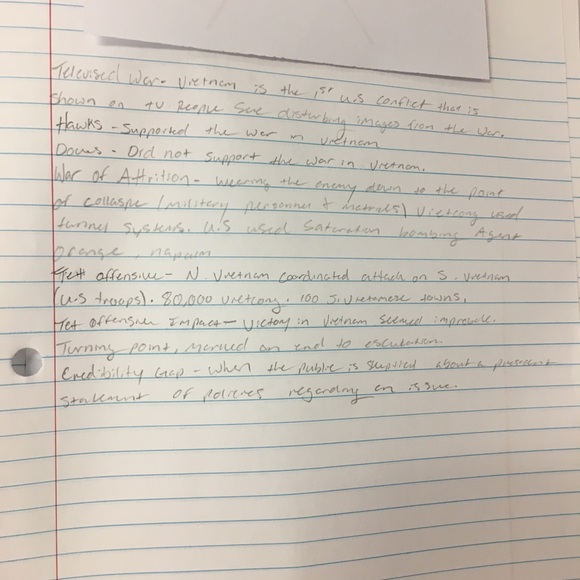 Televised War - Vietnam is the 1st U.S conflict that is
shown on TV People see disturbing images from the war.
Hawks - Supported the war in Vietnam
Doves - Did not support the war in Vietnam.
War of Attrition - wearing the enemy down to the point
of collaspe (military personnel & metrials) Vietcong used
tunnel systems. U.S used Saturation bombing Agent
orange, napalm
Tet offensive - N. Vietnam coordinated attach on S. Vietnam
(U.S troops). 80,000 Vietcong. 100 S. Vietnamese towns.
Tet Offensive Impact - Victory in Vietnam seemed
Turning point, marked an end to escalation.
Credibility Gap - When the public is about a president
statement of policies regarding an issue.